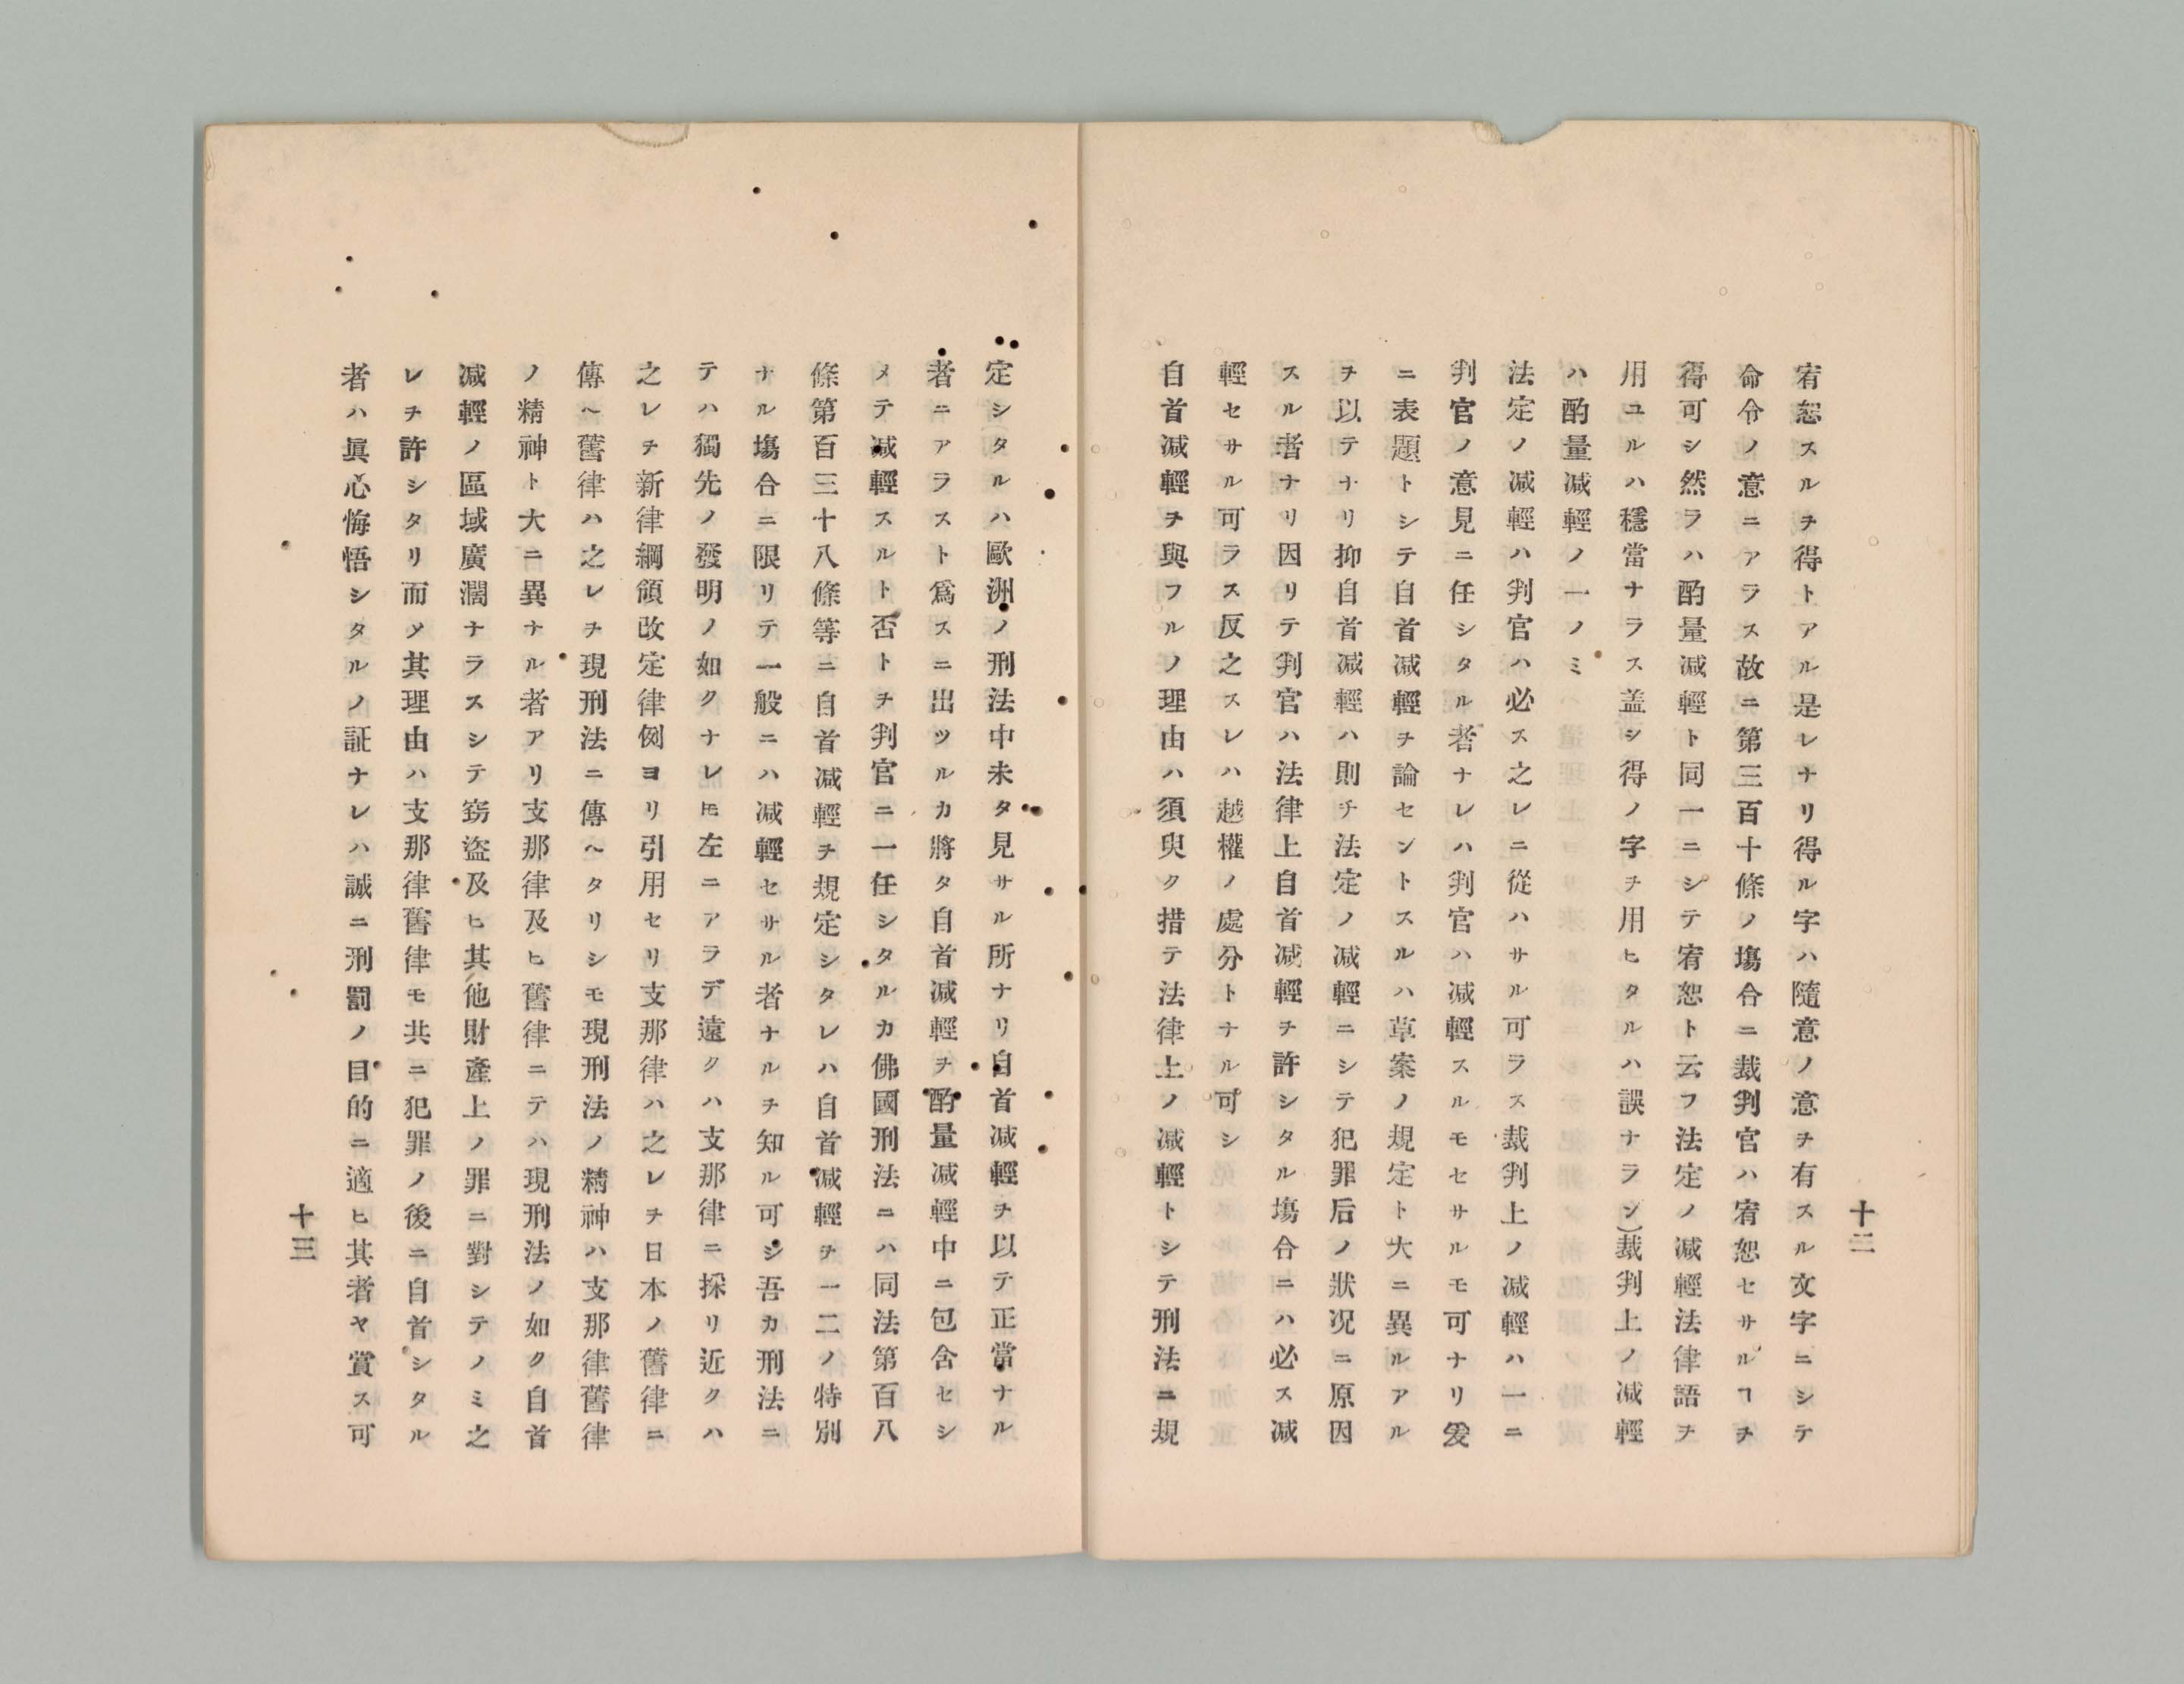 十二
宥恕スルヲ得トアル是レナリ得ル字ハ隨意ノ意ヲ有スル文字ニシテ
命令ノ意ニアラス故ニ第三百十條ノ塲合ニ裁判官ハ宥恕セサルヿヲ
得可シ然ラハ酌量減輕ト同一ニシテ宥恕ト云フ法定ノ減輕法律語ヲ
用ユルハ穩當ナラス盖シ得ノ字ヲ用ヒタルハ誤ナラン)裁判上ノ減輕
ハ酌量減輕ノ一ノミ
法定ノ減輕ハ判官ハ必ス之レニ從ハサル可ラス裁判上ノ減輕ハ一ニ
判官ノ意見ニ任シタル者ナレハ判官ハ減輕スルモセサルモ可ナリ爰
ニ表題トシテ自首減輕ヲ論セントスルハ草案ノ規定ト大ニ異ルアル
ヲ以テナリ抑自首減輕ハ則チ法定ノ減輕ニシテ犯罪后ノ狀况ニ原因
スル者ナリ因リテ判官ハ法律上自首減輕ヲ許シタル塲合ニハ必ス減
輕セサル可ラス反之スレハ越權ノ處分トナル可シ
自首減輕ヲ與フルノ理由ハ須臾ク措テ法律上ノ減輕トシテ刑法ニ規
定シタルハ歐洲ノ刑法中未タ見サル所ナリ自首減輕ヲ以テ正當ナル
者ニアラスト爲スニ出ツルカ將タ自首減輕ヲ酌量減輕中ニ包含セシ
メテ減輕スルト否トヲ判官ニ一任シタルカ佛國刑法ニハ同法第百八
條第百三十八條等ニ自首減輕ヲ規定シタレハ自首減輕ヲ一二ノ特別
ナル塲合ニ限リテ一般ニハ減輕セサル者ナルヲ知ル可シ吾カ刑法ニ
テハ獨先ノ發明ノ如クナレ𪜈左ニアラデ遠クハ支那律ニ採リ近クハ
之レヲ新律綱領改定律例ヨリ引用セリ支那律ハ之レヲ日本ノ舊律ニ
傳ヘ舊律ハ之レヲ現刑法ニ傳ヘタリシモ現刑法ノ精神ハ支那律舊律
ノ精神ト大ニ異ナル者アリ支那律及ヒ舊律ニテハ現刑法ノ如ク自首
減輕ノ區域廣濶ナラスシテ窃盜及ヒ其他財產上ノ罪ニ對シテノミ之
レヲ許シタリ而〆其理由ハ支那律舊律モ共ニ犯罪ノ後ニ自首シタル
者ハ眞心悔悟シタルノ証ナレハ誠ニ刑罰ノ目的ニ適ヒ其者ヤ賞ス可
十三